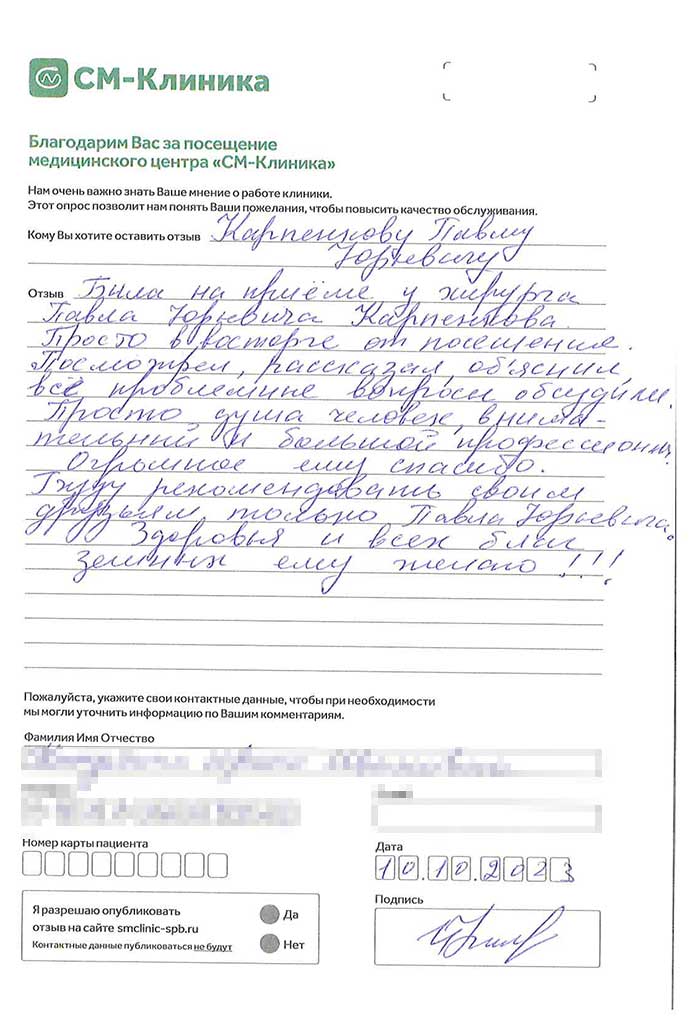 СМ-Клиника
Благодарим Вас за посещение
медицинского центра «СМ-Клиника»
Нам очень важно знать Ваше мнение о работе клиники.
Этот опрос позволит нам понять Ваши пожелания, чтобы повысить качество обслуживания.
Кому Вы хотите оставить отзыв Карпенкову Павлу
Юрьевичу
Отзыв Была на приёме у хирурга
Павла Юрьевича Карпенкова.
Просто в восторге от посещения.
Посмотрел, рассказал, объяснил
всё проблемные вопросы обсудили.
Просто душа человек, внима-
тельный и большой профессионал.
Огромное ему спасибо.
Буду рекомендовать своим
друзьям только Павла Юрьевича.
Здоровья и всех благ
земных ему желаю!!!
Пожалуйста, укажите свои контактные данные, чтобы при необходимости
мы могли уточнить информацию по Вашим комментариям.
Фамилия Имя Отчество
Номер карты пациента
Дата
10.10.2023
Я разрешаю опубликовать
отзыв на сайте smclinic-spb.ru
Контактные данные публиковаться не будут
Да
Нет
Подпись